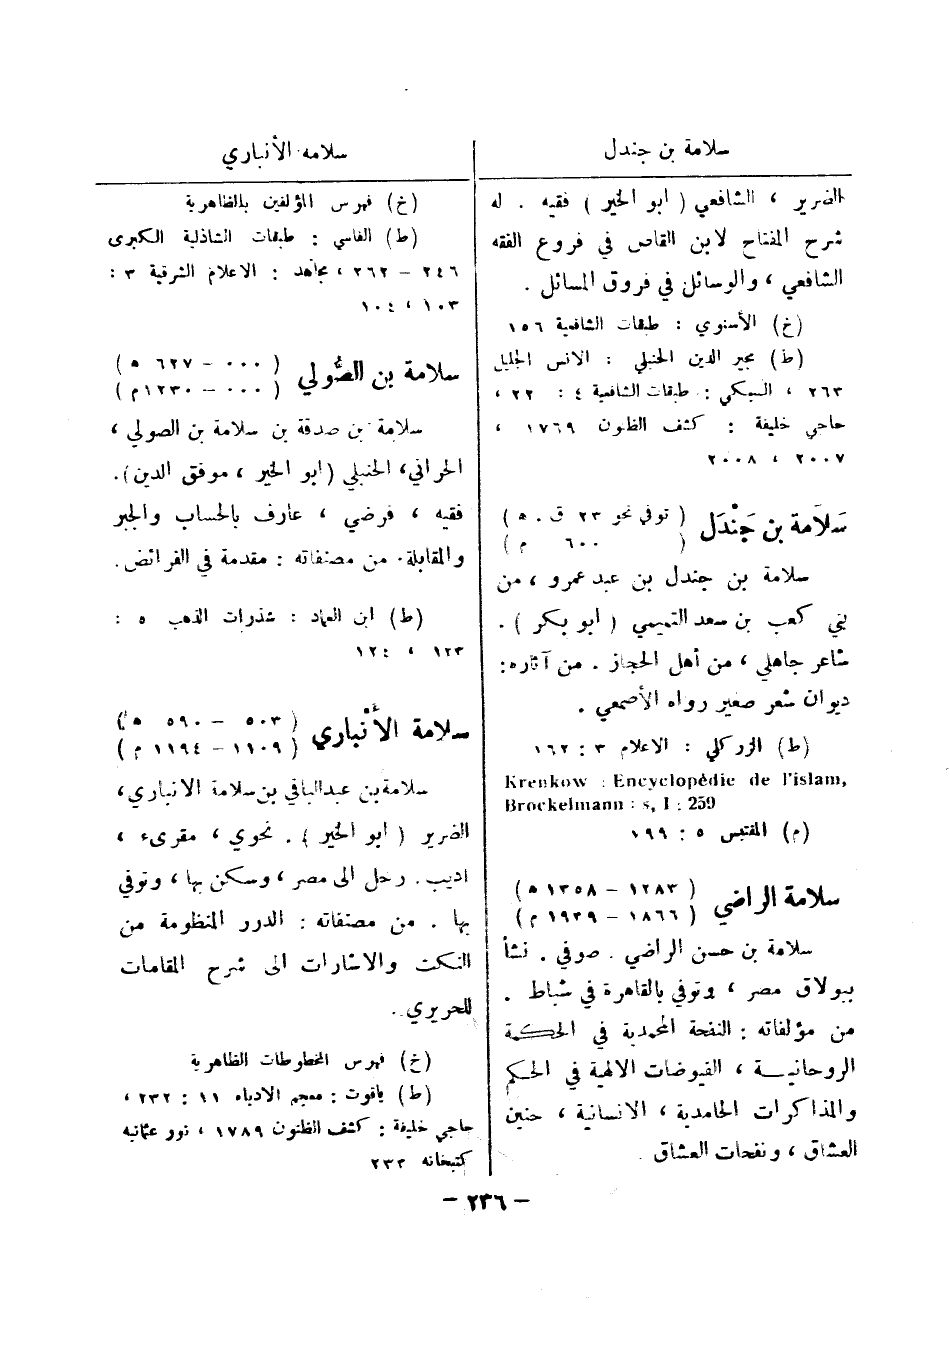 سلامة بن جندل
الضرير ، الشافعي ( ابو الخير ) فقيه . له
شرح المفتاح لابن القاص في فروع الفقه
الشافعي ، والوسائل في فروق المسائل .
(خ) الأسنوي : طبقات الشافعية ١٥٦
(ط) مجير الدين الحنبلي : الانس الجليل
٢٦٣ ، السبكي : طبقات الشافعية ٤ : ٢٢ ،
حاجي خليفة : كشف الظنون ١٧٦٩ ،
٢٠٠٧ ، ٢٠٠٨
سَلاَمة بن جَنْدَل ( توفي نحو ٢٣ ق . ه )
( ٦٠٠ م )
سلامة بن جندل بن عبد عمرو ، من
بني كعب بن سعد التميمي ( ابو بكر ) .
شاعر جاهلي ، من أهل الحجاز . من آثاره :
ديوان شعر صغير رواه الأصمعي .
(ط) الزركلي : الاعلام ٣ : ١٦٢
Krenkow : Encyclopédie de l'islam,
Brockelmann : s, I : 259
(م) المقتبس ٥ : ١٩٩
سلامة الراضي ( ١٢٨٣ – ١٣٥٨ ه )
( ١٨٦٦ – ١٩٣٩ م )
سلامة بن حسن الراضي . صوفي . نشأ
ببولاق مصر ، وتوفي بالقاهرة في شباط .
من مؤلفاته : النفحة المحمدية في الحكمة
الروحانيـة ، الفيوضات الالهية في الحكم
والمذاكرات الحامدية ، الانسانية ، حنين
العشاق ، ونفحات العشاق .
سلامه الأنباري
(خ) فهرس المؤلفين بالظاهرية
(ط) الفاسي : طبقات الشاذلية الكبرى
٢٤٦ – ٢٦٢ ، مجاهد : الاعلام الشرقية ٣ :
١٠٣ ، ١٠٤
سلامة بن الصُّولي ( ٠٠٠ – ٦٢٧ ه )
( ٠٠٠ – ١٢٣٠م )
سلامة بن صدقة بن سلامة بن الصولي ،
الحراني ، الحنبلي (ابو الخير ، موفق الدين).
فقيه ، فرضي ، عارف بالحساب والجبر
والمقابلة . من مصنفاته : مقدمة في الفرائض .
(ط) ابن العماد : شذرات الذهب ٥ :
١٢٣ ، ١٢٤
سلامة الأَنْباري ( ٥٠٣ – ٥٩٠ ه )
( ١١٠٩ – ١١٩٤ م )
سلامة بن عبدالباقي بن سلامة الانباري ،
الضرير ( ابو الخير ) . نحوي ، مقرىء ،
اديب . رحل الى مصر ، وسكن بها ، وتوفي
بها . من مصنفاته : الدرر المنظومة من
النكت والاشارات الى شرح المقامات
للحريري .
(خ) فهرس المخطوطات الظاهرية
(ط) ياقوت : معجم الادباء ١١ : ٢٣٢ ،
حاجي خليفة : كشف الظنون ١٧٨٩ ، نور عثمانيه
كتبخانه ٢٣٣
– ٢٣٦ –